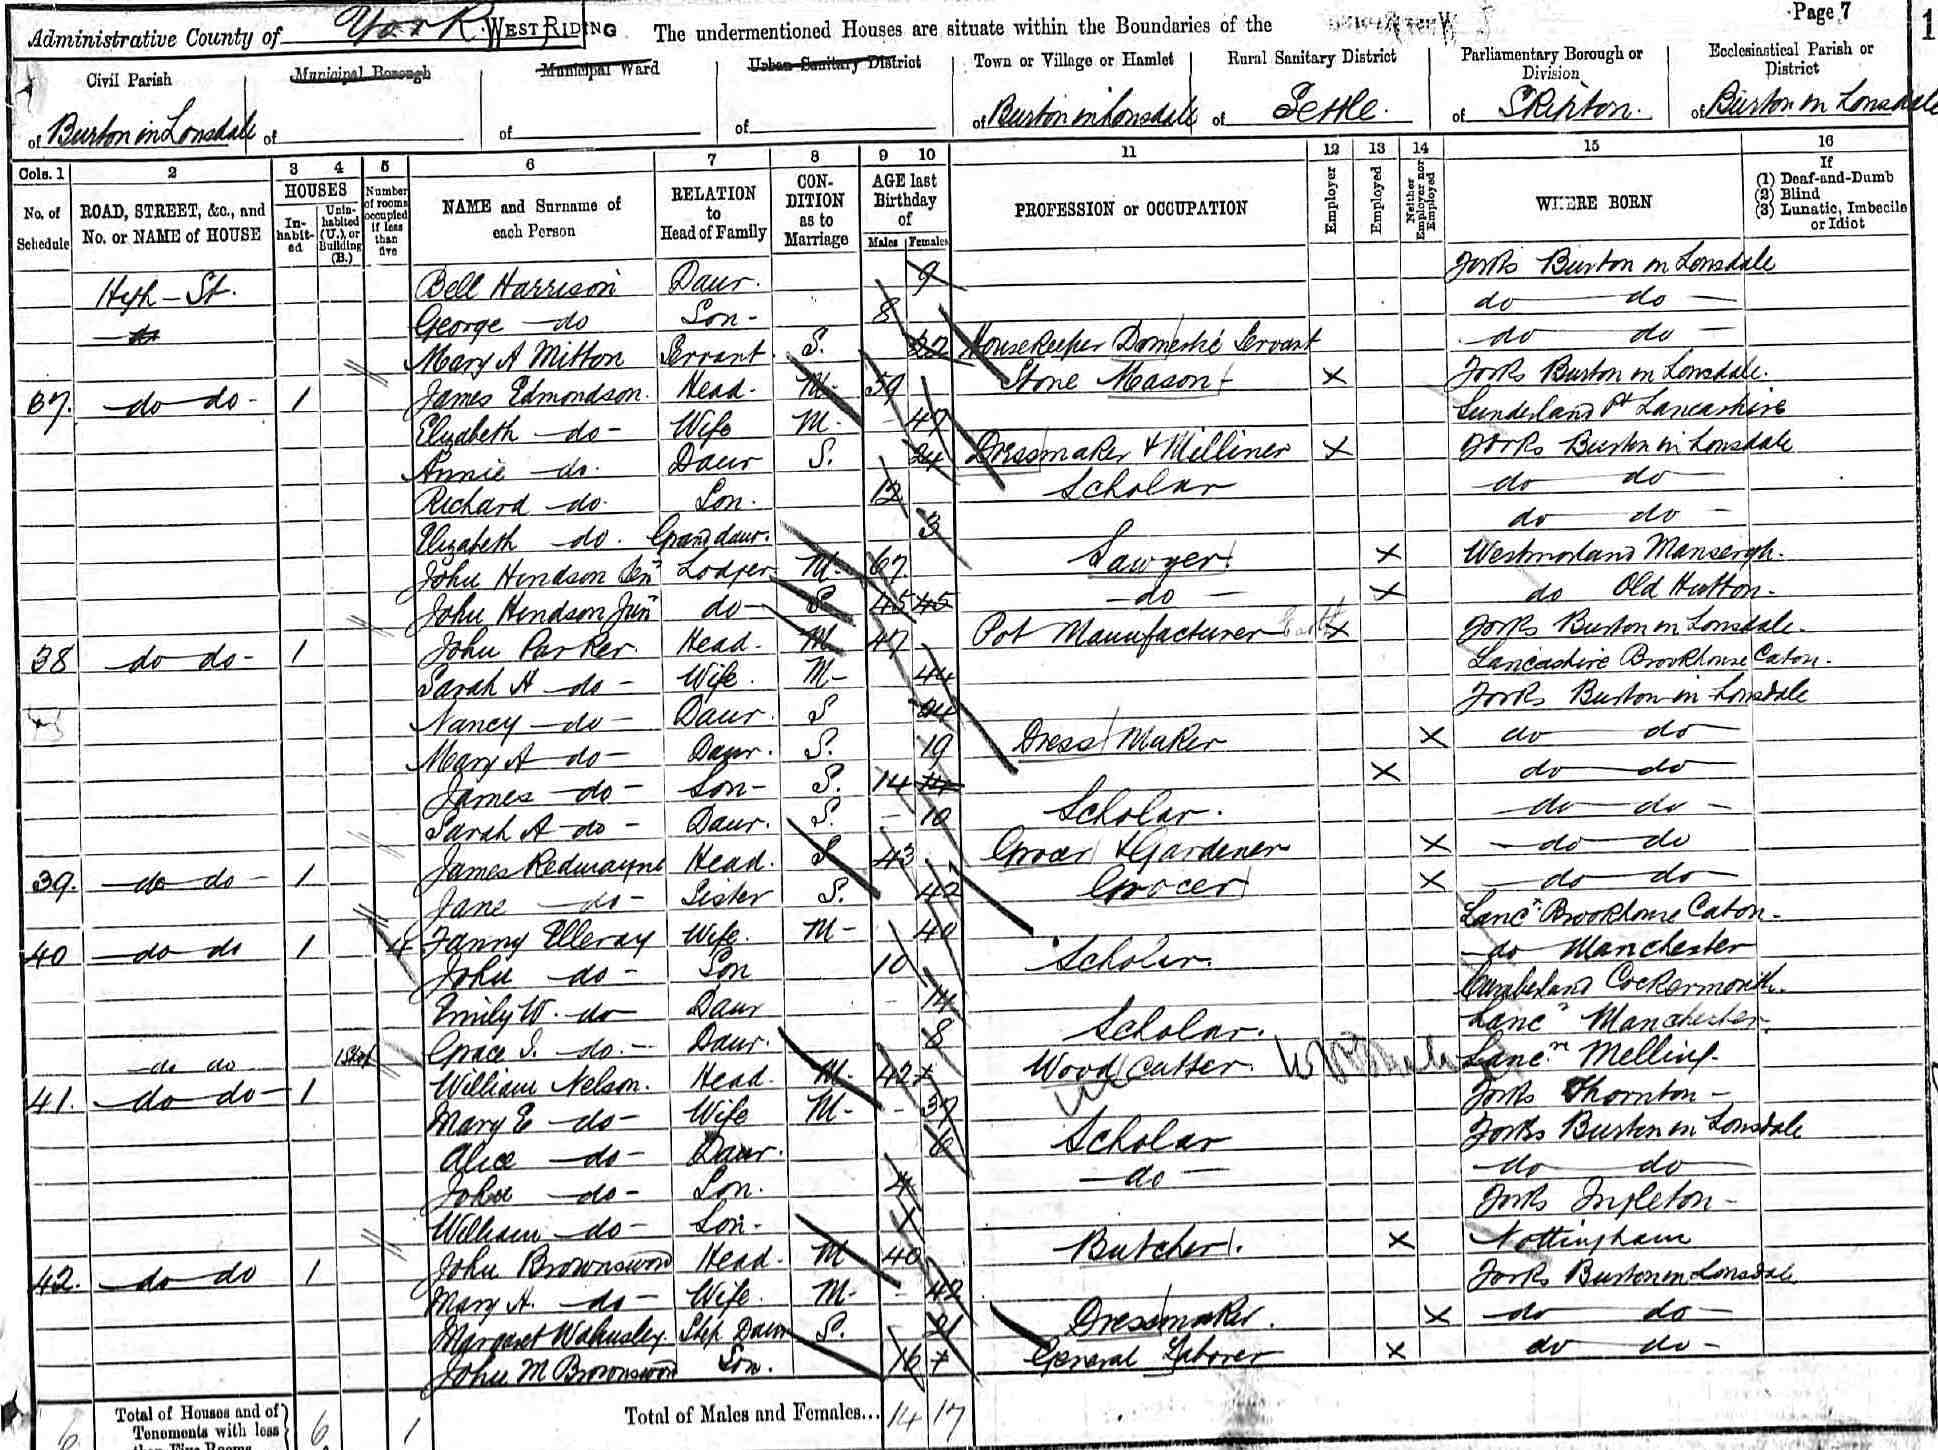 Administrative County of York. WEST RIDING The undermentioned Houses are situate within the Boundaries of the Page 7
Civil Parish Municipal Borough Municipal Ward Urban Sanitary District Town or Village or Hamlet Rural Sanitary District Parliamentary Borough or Division Ecclesiastical Parish or District
of Burton in Lonsdale of of of of Burton in Lonsdale of Settle. of Skipton. of Burton in Lonsdale
Cols. 1 2 3 4 5 6 7 8 9 10 11 12 13 14 15 16
No. of Schedule ROAD, STREET, &c., and No. or NAME of HOUSE HOUSES Inhabited Uninhabited (U.), or Building (B.) Number of rooms occupied if less than five NAME and Surname of each Person RELATION to Head of Family CONDITION as to Marriage AGE last Birthday of Males Females PROFESSION or OCCUPATION Employer Employed Neither Employer nor Employed WHERE BORN If (1) Deaf-and-Dumb (2) Blind (3) Lunatic, Imbecile or Idiot
High St. Bell Harrison Daur. 9 Yorks Burton in Lonsdale
do George do Son 8 do do
Mary A Mitton Servant S. 22 Housekeeper Domestic Servant do do
37. do do 1 James Edmondson. Head M 59 Stone Mason X Yorks Burton in Lonsdale.
Elizabeth do Wife M 47 Sunderland Pt Lancashire
Annie do. Daur S. 24 Dressmaker & Milliner X Yorks Burton in Lonsdale
Richard do. Son. 12 Scholar do do
Elizabeth do. Grand daur. 3 do do
John Hindson Senr Lodger M 67 Sawyer X Westmorland Mansergh.
John Hindson Junr do S 45 45 do X do Old Hutton.
38 do do 1 John Parker. Head. M 47 Pot Manufacturer X Yorks Burton in Lonsdale.
Sarah H do Wife. M 44 Lancashire Brookhouse Caton.
Nancy do Daur. S 24 Yorks Burton in Lonsdale
Mary A do Daur. S. 19 Dress Maker X do do
James do Son S. 14 14 X do do
Sarah A do Daur. S. 10 Scholar. do do
39. do do 1 James Redmayne Head. S 43 Grocer & Gardener X do do
Jane do Sister S. 42 Grocer X do do
40 do do 1 4 Fanny Elleray Wife. M 40 Lanc. Brookhouse Caton
John do Son 10 Scholar. do Manchester
Emily W. do Daur 14 Cumberland Cockermouth.
Grace I. do. Daur. 8 Scholar. Lanc. Manchester.
do do
41. do do 1 William Nelson. Head. M 42 Wood Cutter. Lanc. Melling
Mary E do Wife M 37 Yorks Thornton
Alice do Daur. 6 Scholar Yorks Burton in Lonsdale
John do Son. 4 do do do
William do Son. 1 Yorks Ingleton
42. do do 1 John Brownsword Head. M 40 Butcher. X Nottingham
Mary A. do Wife. M 42 Yorks Burton in Lonsdale
Margaret Walmsley. Step Daur S. 21 Dressmaker. X do do
John M Brownsword Son. 16 General Laborer X do do
Total of Houses and of Tenements with less than Five Rooms 6 1 Total of Males and Females... 14 17